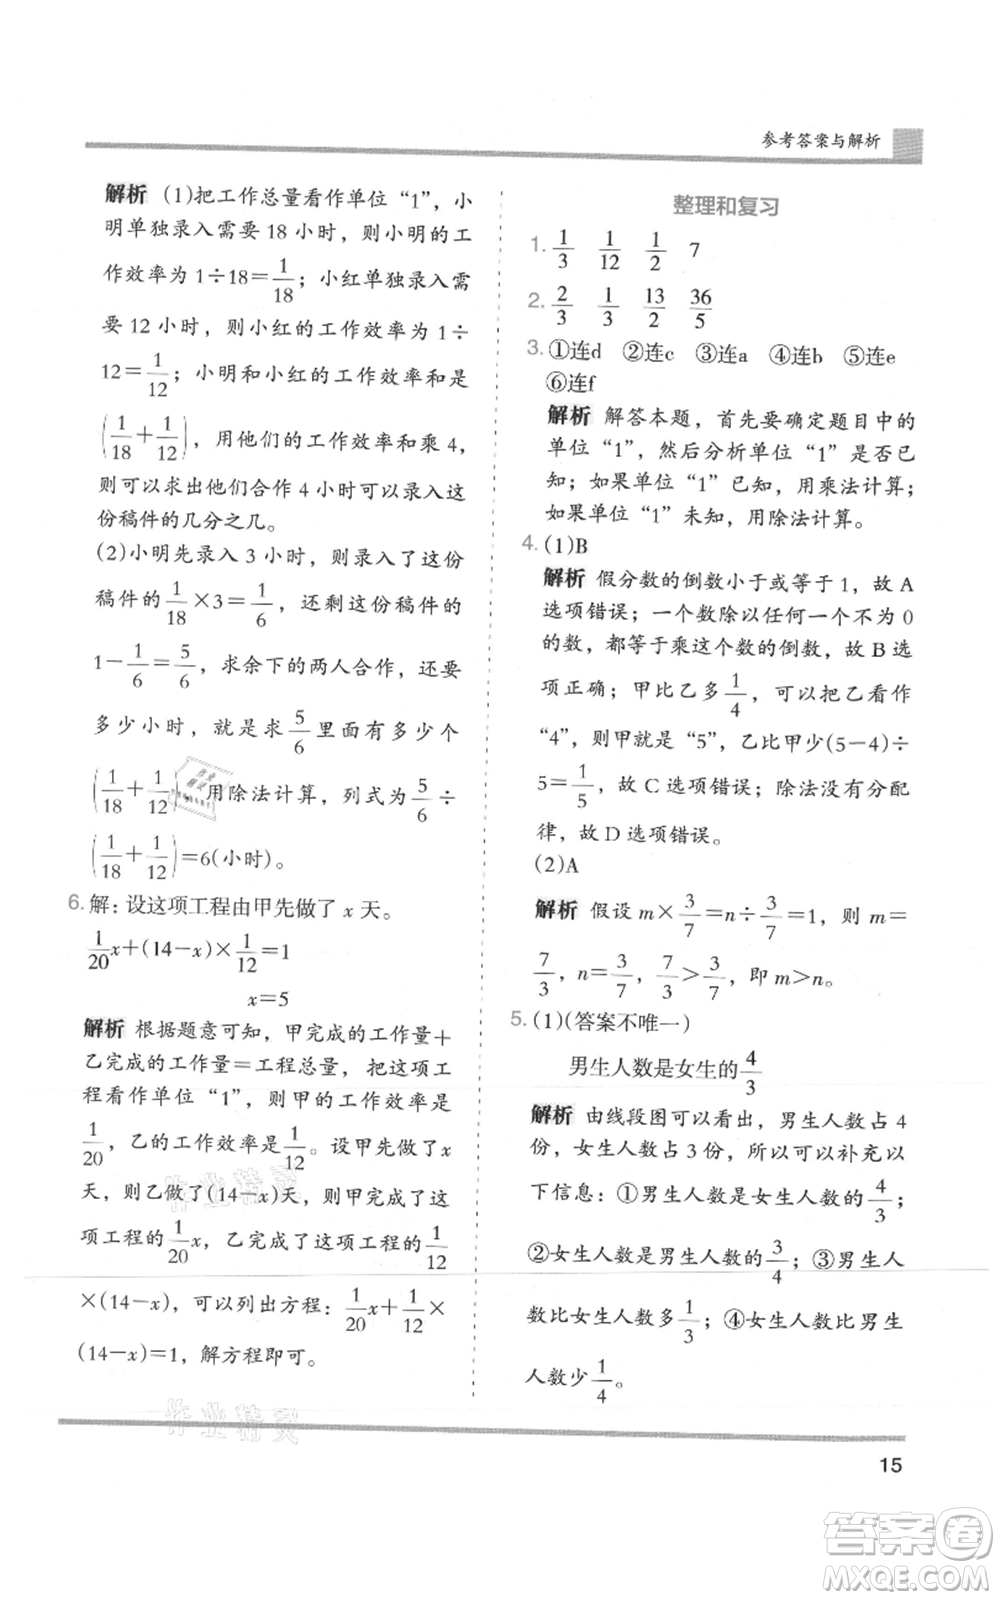 参考答案与解析
解析 (1)把工作总量看作单位“1”，小
明单独录入需要 18 小时，则小明的工
作效率为 1÷18=1/18；小红单独录入需
要 12 小时，则小红的工作效率为 1÷
12=1/12；小明和小红的工作效率和是
(1/18+1/12)，用他们的工作效率和乘 4，
则可以求出他们合作 4 小时可录入这
份稿件的几分之几。
(2)小明先录入 3 小时，则录入了这份
稿件的 1/18×3=1/6，还剩这份稿件的
1-1/6=5/6，求余下的两人合作，还要
多少小时，就是求 5/6 里面有多少个
(1/18+1/12)，用除法计算，列式为 5/6÷
(1/18+1/12)=6(小时)。
6. 解：设这项工程由甲先做了 x 天。
1/20x+(14-x)×1/12=1
x=5
解析 根据题意可知，甲完成的工作量+
乙完成的工作量=工程总量，把这项工
程看作单位“1”，则甲的工作效率是
1/20，乙的工作效率是1/12。设甲先做了 x
天，则乙做了(14-x)天，则甲完成了这
项工程的 1/20x，乙完成了这项工程的 1/12
×(14-x)，可以列出方程：1/20x+1/12×
(14-x)=1，解方程即可。
整理和复习
1. 1/3 1/12 1/2 7
2. 2/3 1/3 13/2 36/5
3. ①连d ②连c ③连a ④连b ⑤连e
⑥连f
解析 解答本题，首先要确定题目中的
单位“1”，然后分析单位“1”是否已
知；如果单位“1”已知，用乘法计算；
如果单位“1”未知，用除法计算。
4. (1)B
解析 假分数的倒数小于或等于 1，故 A
选项错误；一个数除以任何一个不为 0
的数，都等于乘这个数的倒数，故 B 选
项正确；甲比乙多 1/4，可以把乙看作
“4”，则甲就是“5”，乙比甲少(5-4)÷
5=1/5，故 C 选项错误；除法没有分配
律，故 D 选项错误。
(2)A
解析 假设 m×3/7=n÷3/7=1，则 m=
7/3，n=3/7，7/3>3/7，即 m>n。
5. (1)(答案不唯一)
男生人数是女生的 4/3
解析 由线段图可以看出，男生人数占 4
份，女生人数占 3 份，所以可以补充以
下信息：①男生人数是女生人数的 4/3；
②女生人数是男生人数的 3/4；③男生人
数比女生人数多 1/3；④女生人数比男生
人数少 1/4。
作业精灵
作业精灵
15
答案卷
MXQE.COM